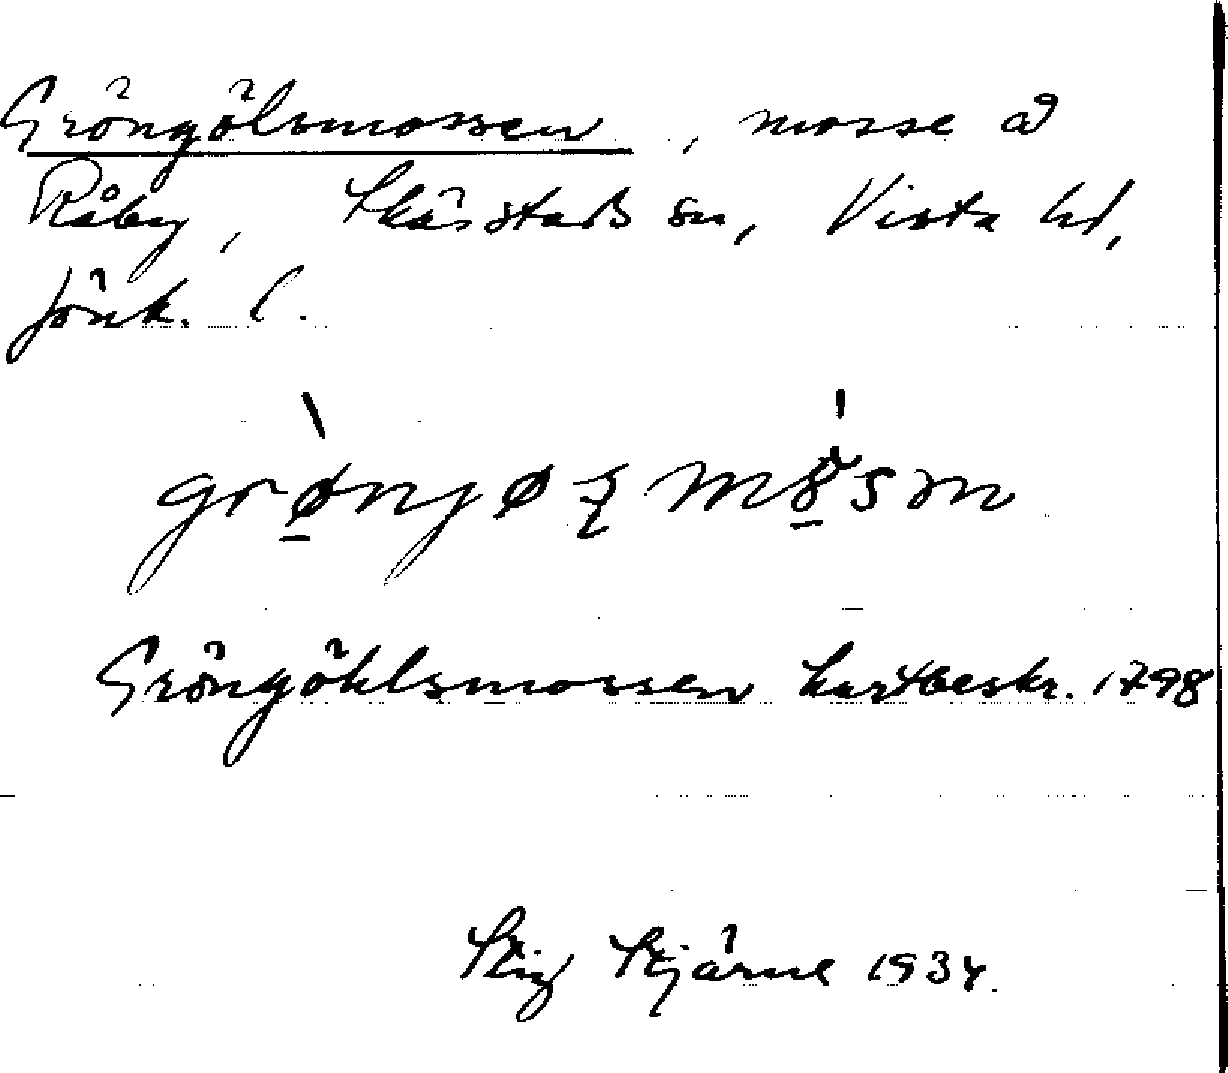 Gröngölsmossen, mosse å
Råby, Skärstads sn, Vista hd,
Jönk. l.
Gröngöhlsmossen kartbeskr. 1798
Stig Stjärne 1934.